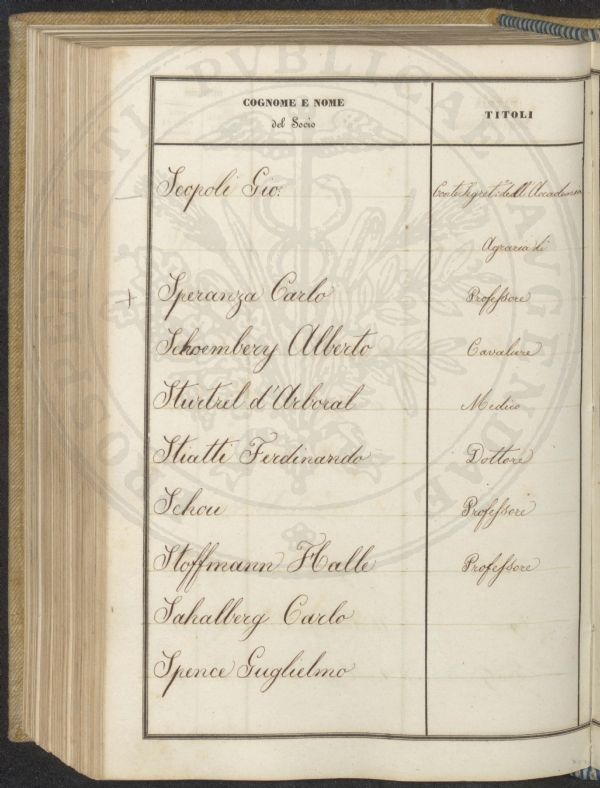 COGNOME E NOME
del Socio
TITOLI
Scopoli Gio:
Conte Segret. dell'Accademia
Agraria di
Speranza Carlo
Professore
Schoembery Alberto
Cavaliere
Sturtrel d'Arboral
Medico
Stiatti Ferdinando
Dottore
Schou
Professore
Stoffmann Halle
Professore
Sahalberg Carlo
Spence Guglielmo
PROSPERITATI PUBLICAE AUGENDAE